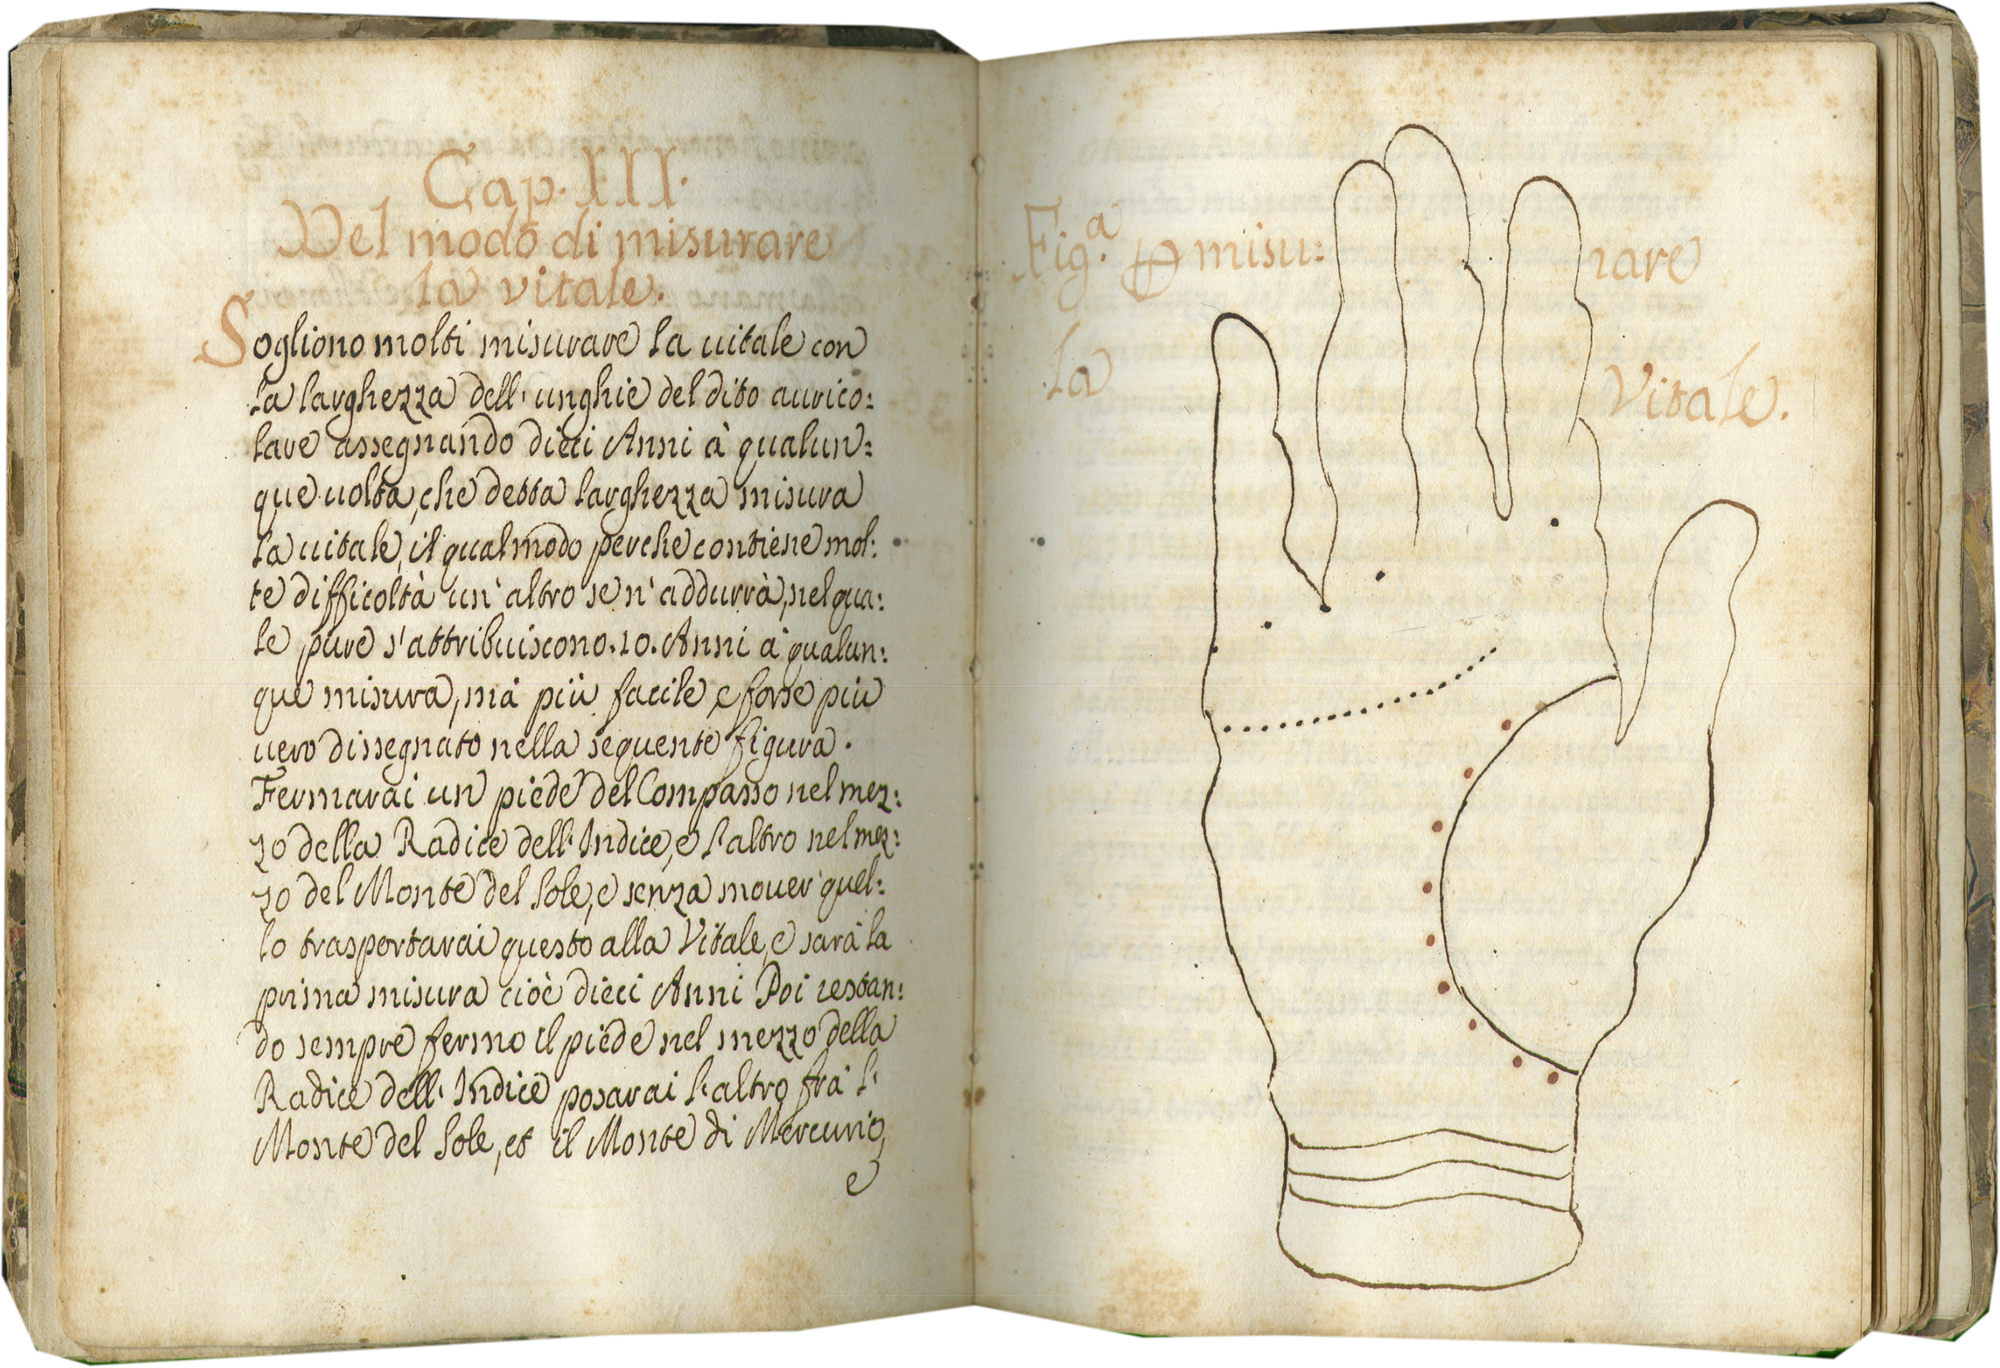 Cap. III.
Del modo di misurare
la vitale.
Sogliono molti misurare la uitale con
la larghezza dell'unghie del dito aurico:
lare assegnando dieci Anni à qualun:
que uolta, che detta larghezza misura
la uitale, il qual modo perche contiene mol:
te difficoltà un'altro se n'addurrà, nel qua:
le pure s'attribuiscono .10. Anni à qualun:
que misura, mà più facile, e forse più
uero dissegnato nella seguente figura.
Fermarai un piede del Compasso nel mez:
zo della Radice dell'Indice, e l'altro nel mez:
zo del Monte del Sole, e senza mouer quel:
lo trasportarai questo alla Vitale, e sarà la
prima misura cioè dieci Anni Poi restan:
do sempre fermo il piede nel mezzo della
Radice dell'Indice posarai l'altro frà l'
Monte del Sole, et il Monte di Mercurio,
e
Fig.ª misu: rare
la Vitale.